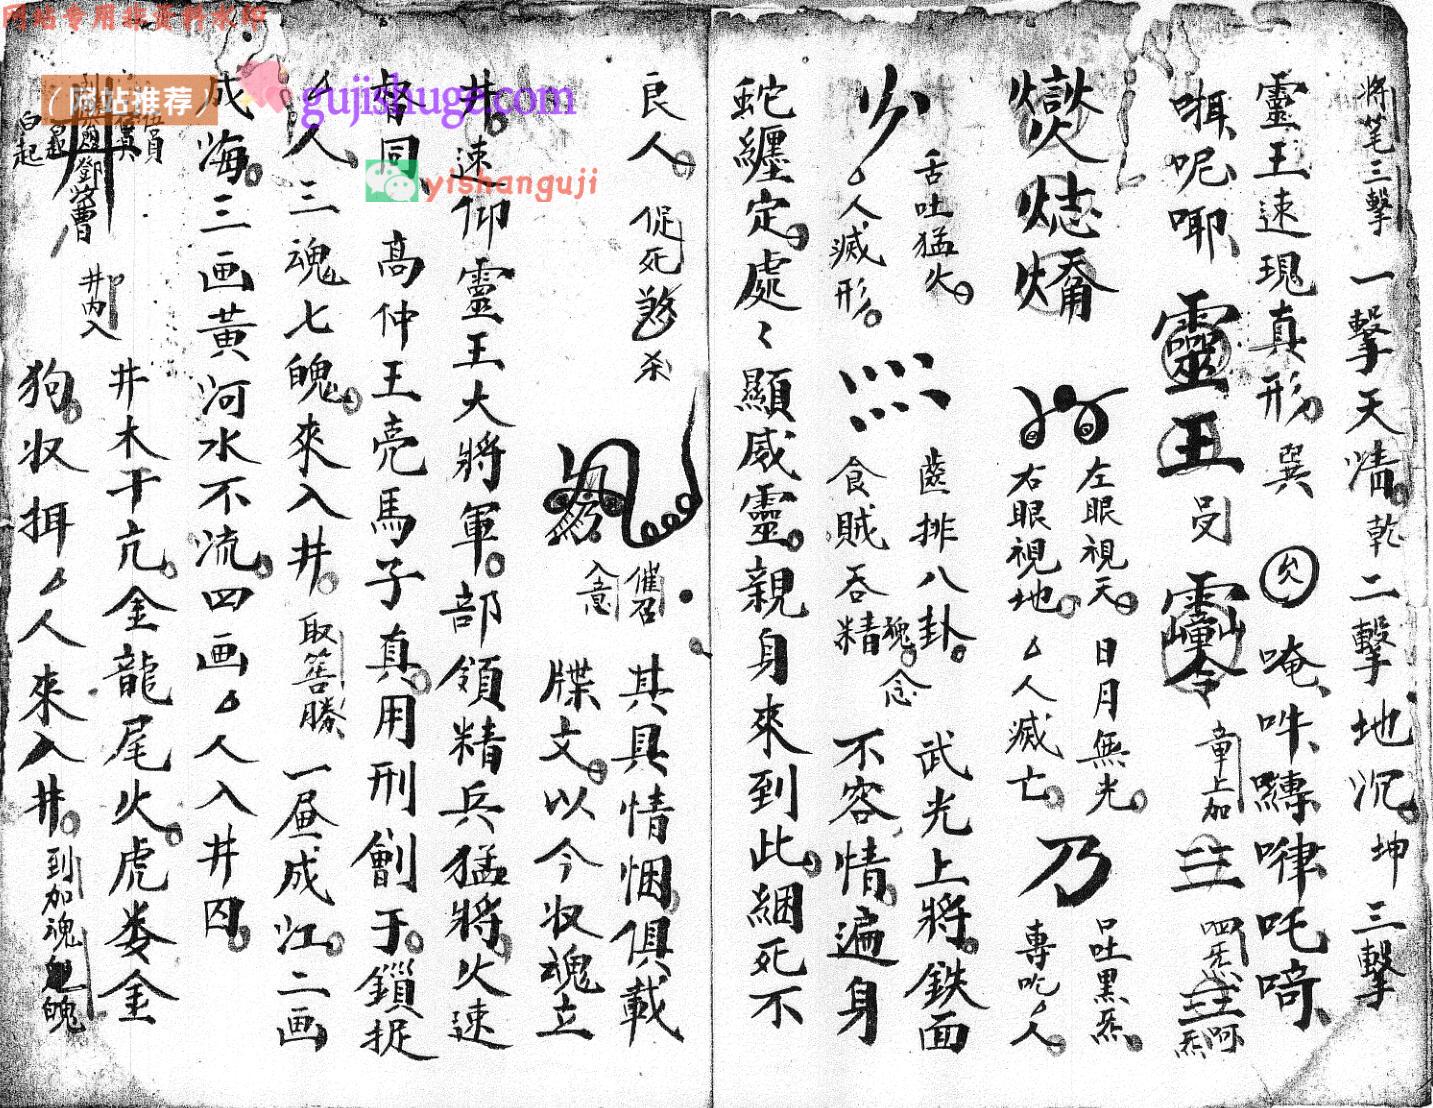 将笔三擊 一擊天清乾 二擊地沉坤 三擊
靈王速現真形巽 唵吽囀嘩吒㗁
呢唧 靈王 受 章上加 三 三
左眼視天 日月無光 口吐黑炁
右眼視地 厶人滅亡 乃 專吃厶人
舌吐猛火 齒排八卦 武光上將鉄面
厶人滅形 食賊吞精魂 念 不容情遍身
蛇纏定處〻顯威靈親身來到此綑死不
良人 促死煞 杀 催召 其具情悃俱載
入意 牒文以今收魂立
井速仰靈王大將軍部領精兵猛將火速
督同高仲王亮馬子真用刑劊于鎖捉
厶人三魂七魄來入井 取筶勝 一画成江二画
成海三画黃河水不流四画厶人入井囚
伍員
白起 鄧 曹 井内入
井木干亢金龍尾火虎娄金
狗收押厶人來入井 到加魂魄
网站专用技资料水印
(网站推荐)
gujishuge.com
yishanguji